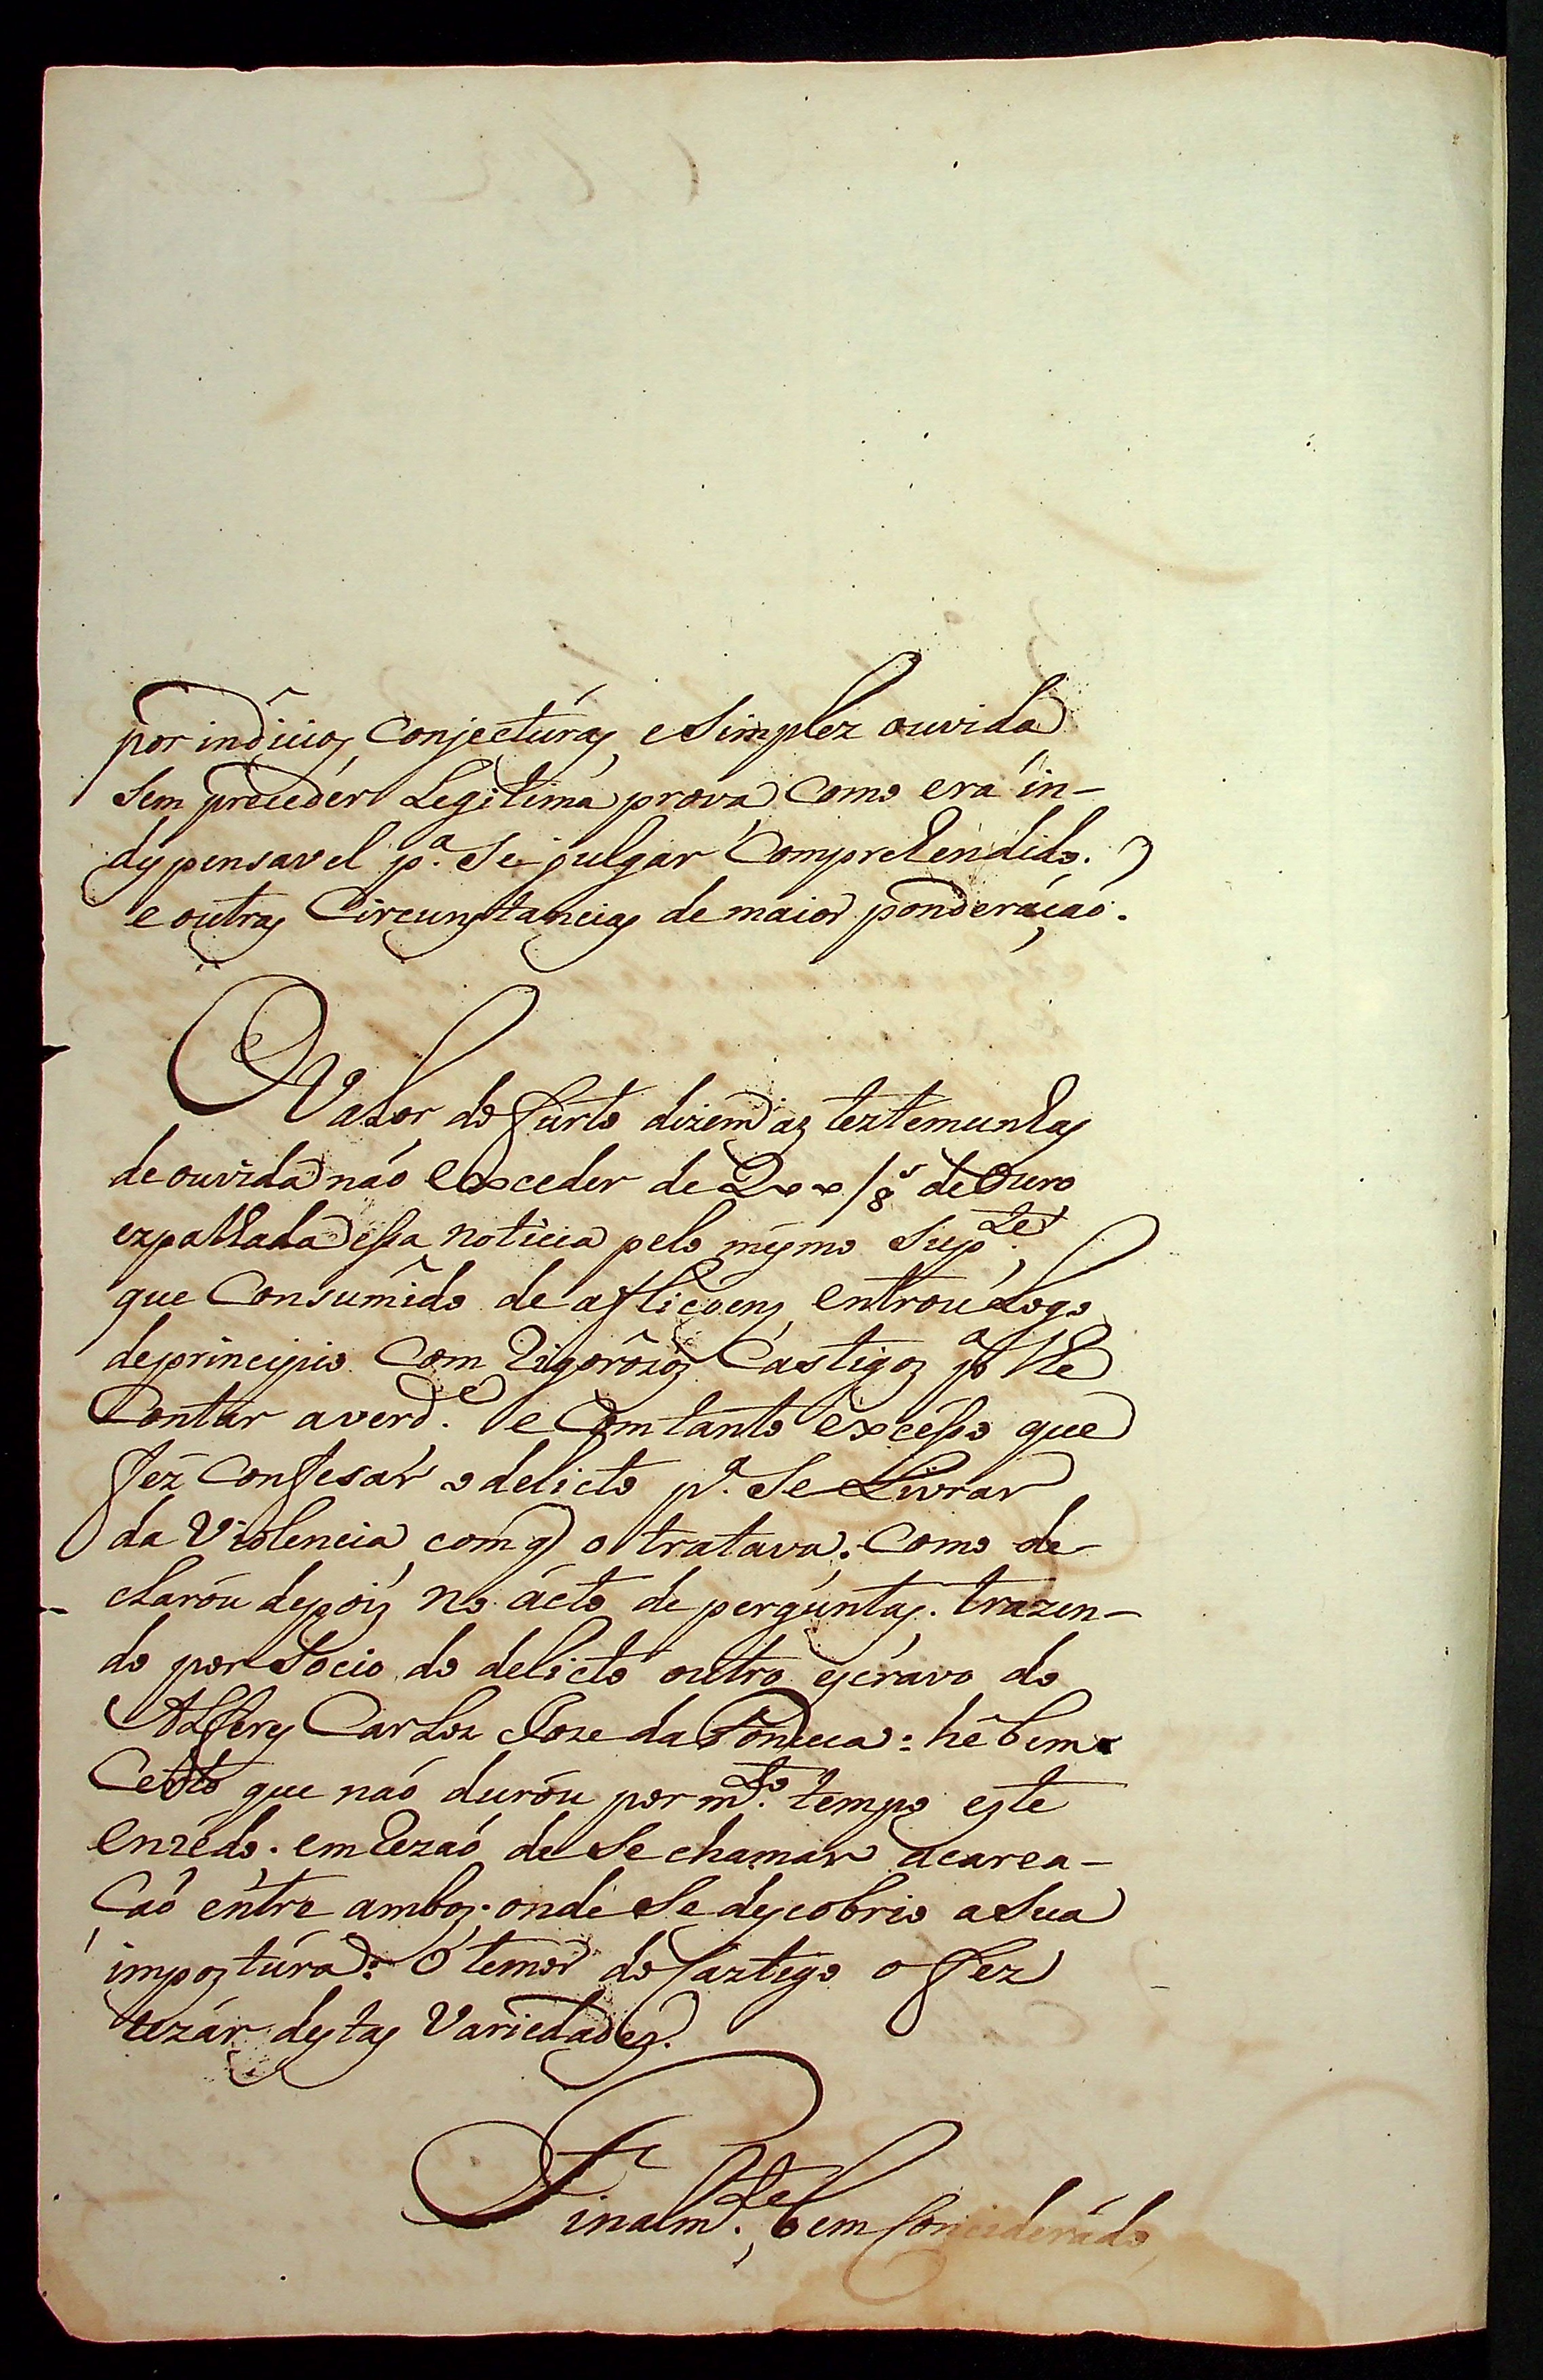 por indicios, conjectúras, e Simplez ouvida
Sem preceder Legitima prova, como era in-
dispensavel p.ª Se julgar Comprehendido.
e outras Circunstancias de maior ponderáçaó.
O Valor do furto dizem as teztemunhas
de ouvida naó exceder de 200/8.s de Ouro
ezpalhada essa noticia pelo mesmo Sup.te
que Consumido de afliçoens, entroú Logo
de principio Com Rigorôzoz Castigoz p.ª lhe
Contar a verd.e e Com tanto excésso que
fez Confesar o delicto p.ª Se Livrar
da Violencia com q̃ o tratava: Como de-
claróu depois no ácto de perguntas. trazen-
do por Socio do delicto outro escravo do
Alferes Carloz Joze da Fonceca: hê bem
Certo que naó duróu por m.to tempo este
enrédo. em rezaó de Se chamar acarea-
çaó entre amboz. onde Se descobrio a Sua
impoztúra: O temor do Caztigo o fez
uzár destas Variedadez.
Finalm.te bem Conciderádo